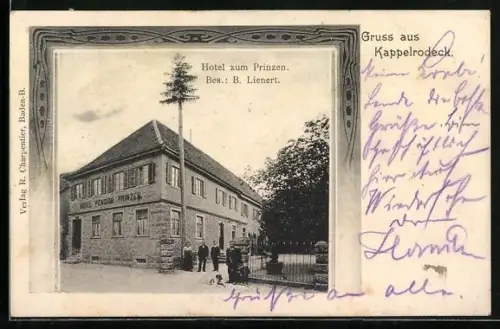 Gruss aus
Kappelrodeck.
Hotel zum Prinzen.
Bes.: B. Lienert.
HOTEL PENSION PRINZEN
Verlag R. Charpentier, Baden-B.
Meine Liebe!
Sende dir beste
Grüße.
hier auf
Wiedersehn
Grüße an alle.